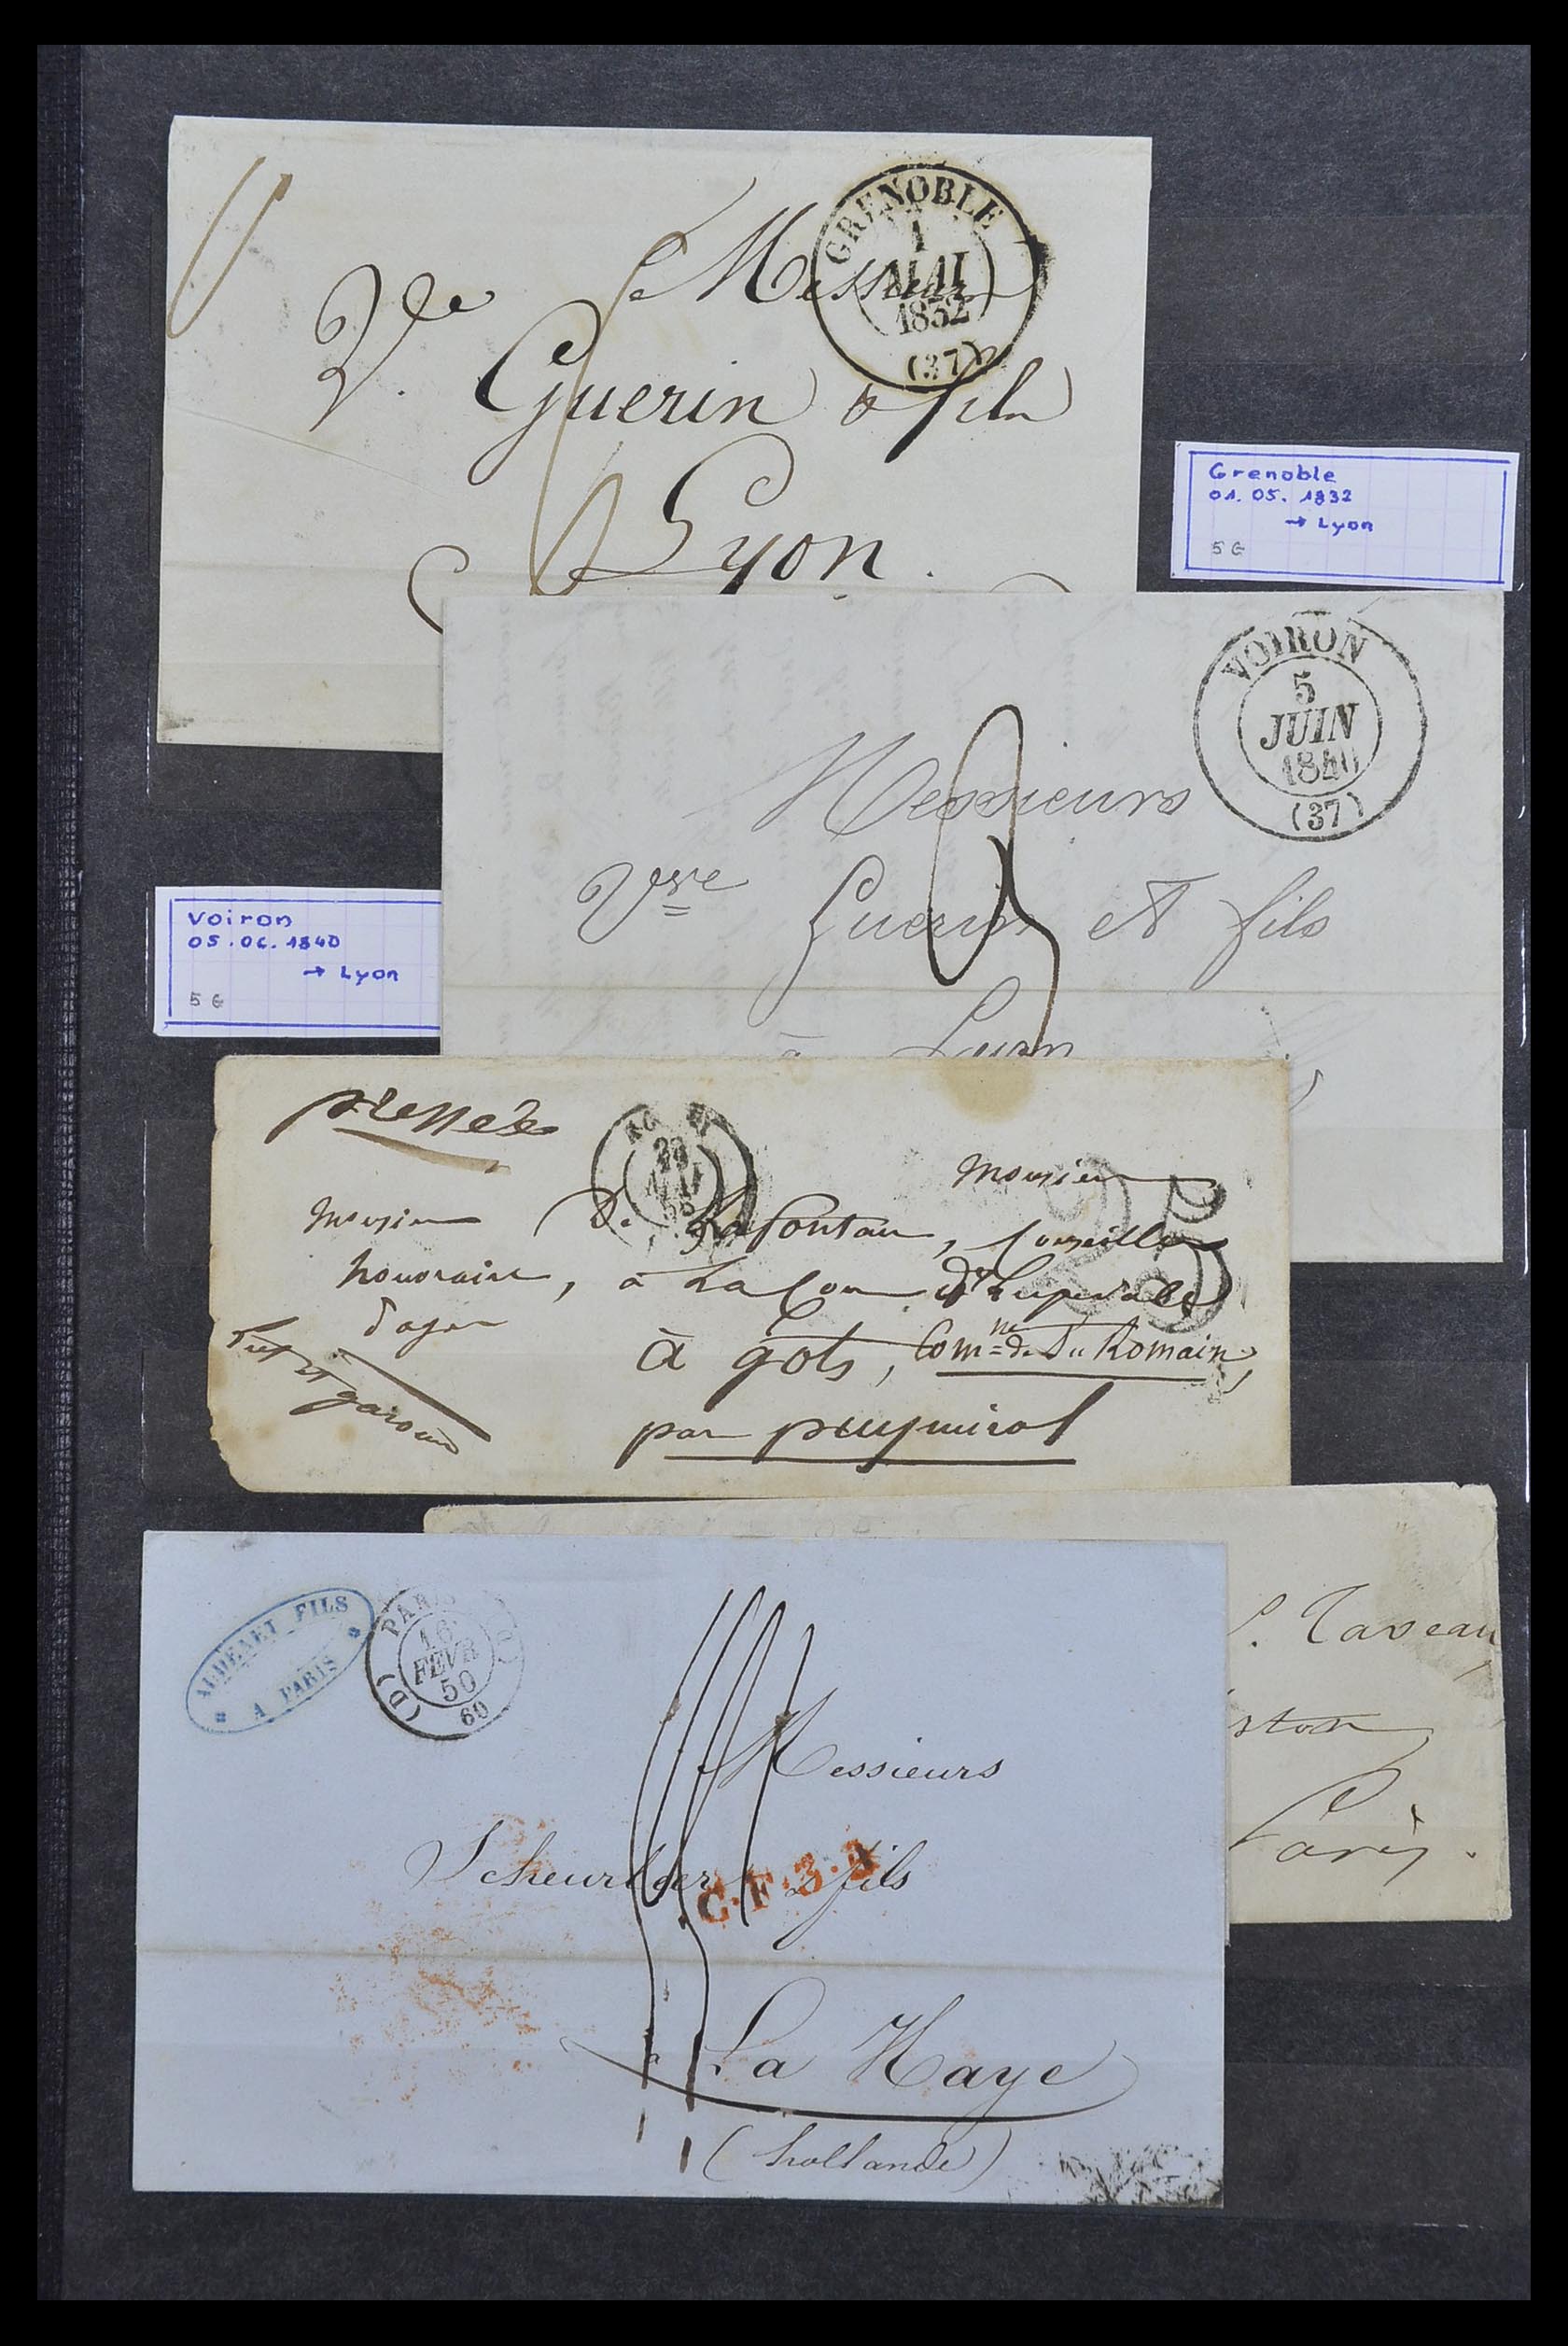 GRENOBLE
1
MAI
1832
(37)
Messieurs
Ve. Guerin & fils
Lyon.
Grenoble
01. 05. 1832
→ Lyon
5 G
VOIRON
5
JUIN
1840
(37)
Messieurs
Vve Guerin et fils
à Lyon
Voiron
05. 06. 1840
→ Lyon
5 G
pressée
Monsieur
25
Monsieur De Lafontan, Conseiller
honoraire, à La Cour Imperiale
d'agen
à gots, Comne de St Romain
par puymirol
Lot et
garonne
P. Taveau
ston
Paris.
FILS
A PARIS
PARIS
(D)
16
FEVR
50
60
Messieurs
& fils
C.F.3.
La Haye
(hollande)